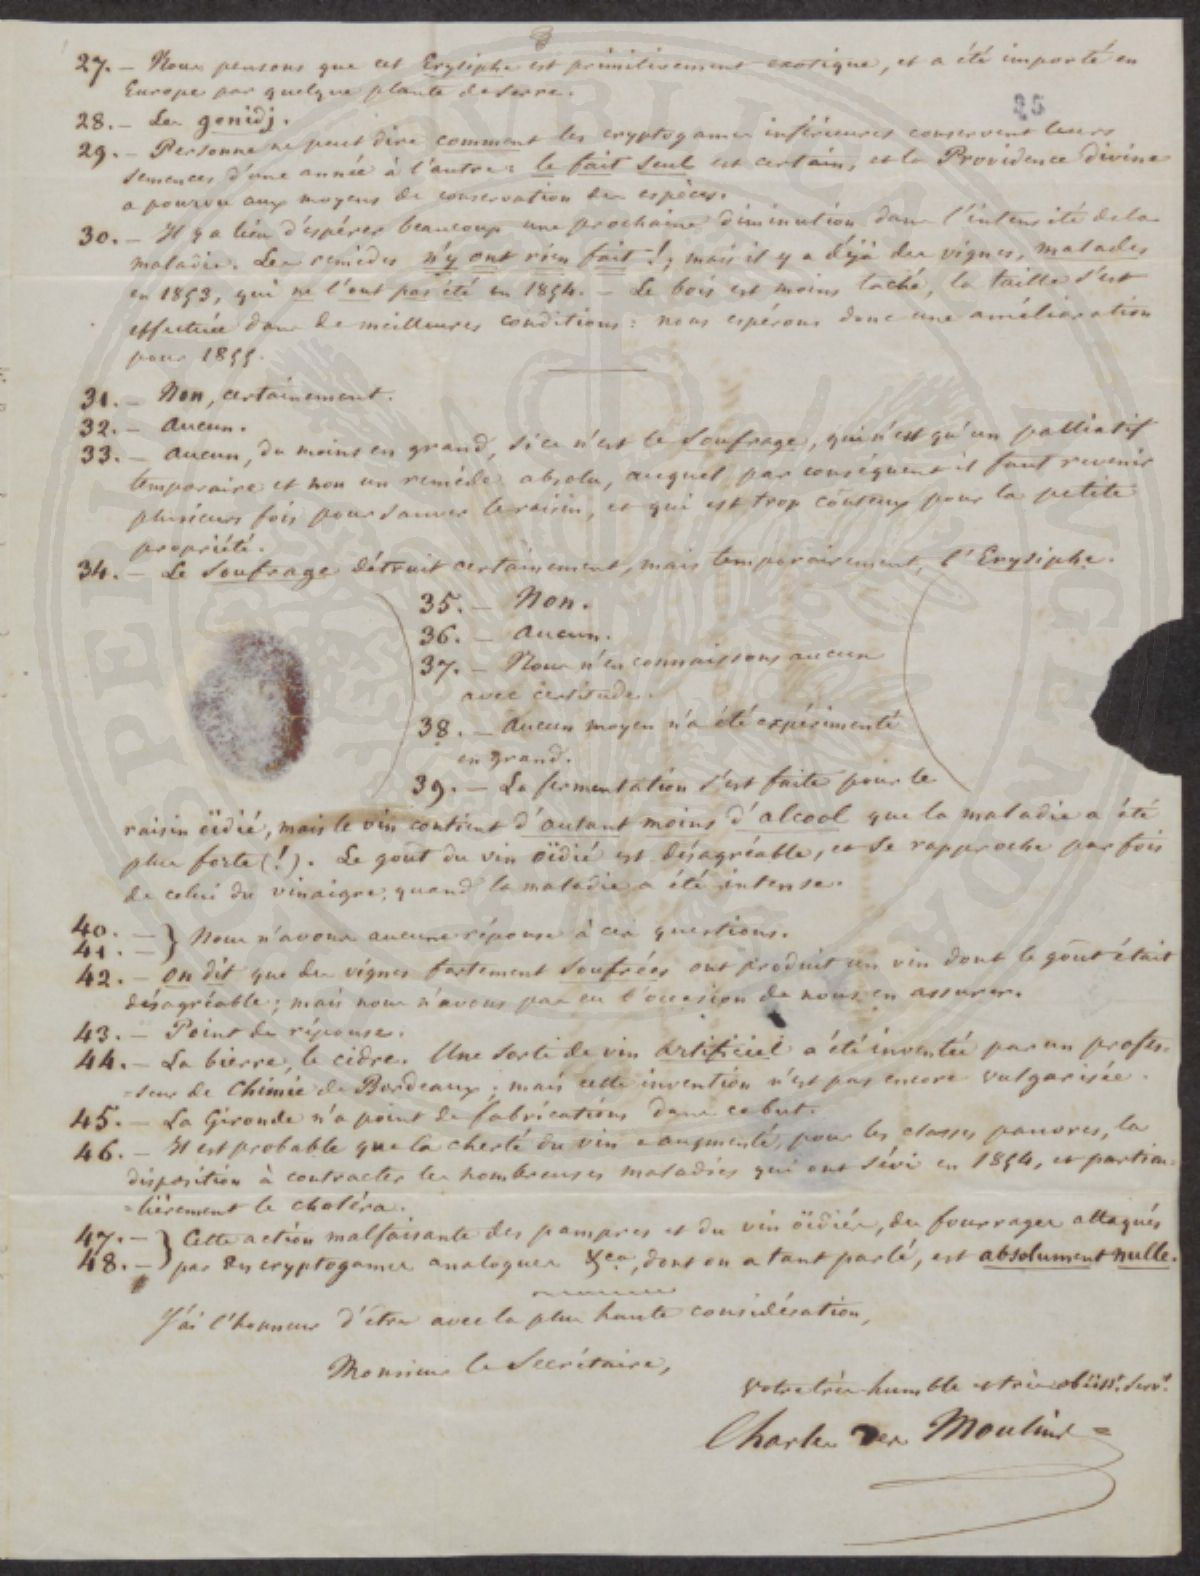 27. – Nous pensons que cet Erysiphe est primitivement exotique, et a été importé en
Europe par quelque plante de serre.
25
28. – Les gonidj.
29. – Personne ne peut dire comment les cryptogames inférieures conservent leurs
semences d'une année à l'autre : le fait seul est certain, et la Providence divine
a pourvu aux moyens de conservation des espèces.
30. – Il y a lieu d'espérer beaucoup une prochaine diminution dans l'intensité de la
maladie. Les remèdes n'y ont rien fait ! ; mais il y a déjà des vignes, malades
en 1853, qui ne l'ont pas été en 1854. – Le bois est moins taché, la taille s'est
effectuée dans de meilleures conditions : nous espérons donc une amélioration
pour 1855.
31. – Non, certainement.
32. – Aucun.
33. – Aucun, du moins en grand, si ce n'est le Soufrage, qui n'est qu'un palliatif
temporaire et non un remède absolu, auquel par conséquent il faut revenir
plusieurs fois pour sauver le raisin, et qui est trop coûteux pour la petite
propriété.
34. – Le Soufrage détruit certainement, mais temporairement, l'Erysiphe.
35. – Non.
36. – Aucun.
37. – Nous n'en connaissons aucun
avec certitude.
38. – Aucun moyen n'a été expérimenté
en grand.
39. – La fermentation s'est faite pour le
raisin oïdié, mais le vin contient d'autant moins d'alcool que la maladie a été
plus forte (!). Le goût du vin oïdié est désagréable, et se rapproche parfois
de celui du vinaigre, quand la maladie a été intense.
40. – }
41. – } Nous n'avons aucune réponse à ces questions.
42. – On dit que des vignes fortement soufrées ont produit un vin dont le goût était
désagréable ; mais nous n'avons pas eu l'occasion de nous en assurer.
43. – Point de réponse.
44. – La bierre, le cidre. Une sorte de vin artificiel a été inventée par un profes-
=seur de Chimie de Bordeaux ; mais cette invention n'est pas encore vulgarisée.
45. – La Gironde n'a point de fabrications dans ce but.
46. – Il est probable que la cherté du vin a augmenté, pour les classes pauvres, la
disposition à contracter les nombreuses maladies qui ont sévi en 1854, et particu=
=lièrement le choléra.
47. – } Cette action malfaisante des pampres et du vin oïdiés, des fourrages attaqués
48. – } par des cryptogames analogues &ca, dont on a tant parlé, est absolument nulle.
J'ai l'honneur d'être avec la plus haute considération,
Monsieur le Secrétaire,
votre très humble et très obéisst. servt.
Charles Des Moulins =